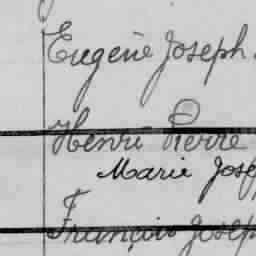 Eugène Joseph
Henri Pierre
Marie Josep
François Josep